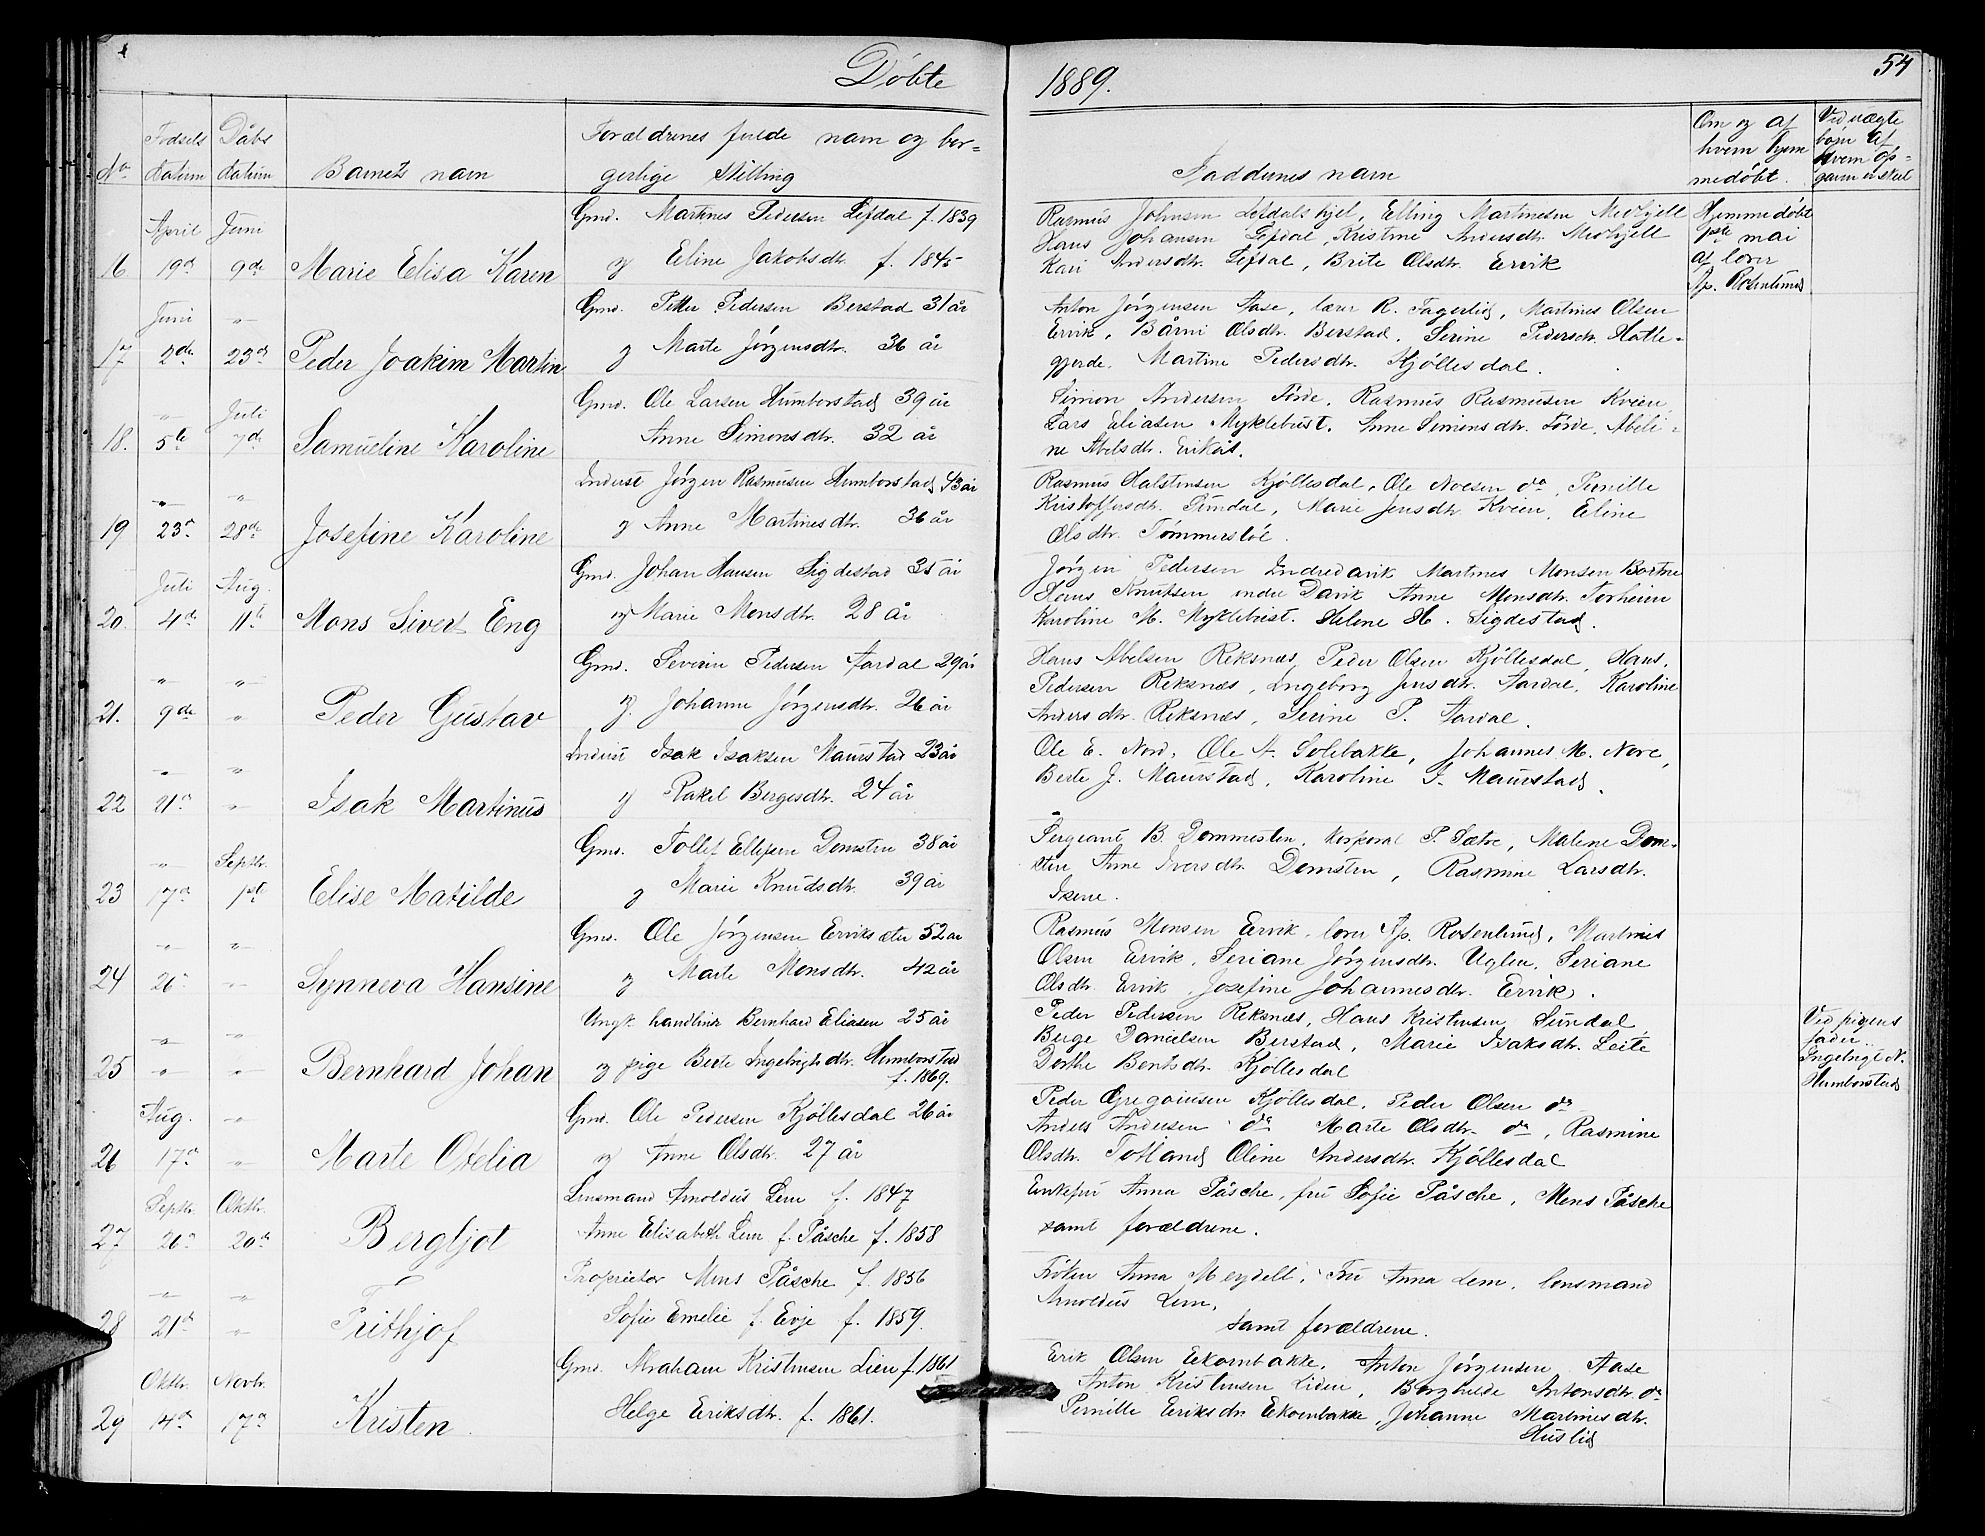 Døbte 1889. 54
No Fødsels datum Dåbs datum Barnets navn Forældrenes fulde navn og borgerlige Stilling Faddernes navn Om og af hvem hjemmedøbt. Ved uægte børn af hvem opgaven er skeet
April Juni Gmd. Martines Pedersen Lefdal f. 1839
16 19d 9de Marie Elisa Karen og Eline Jakobsdtr. f. 1845
Rasmus Johnsen Lefdalskjel, Elling Martinesen Midtjell
Hans Johansen Lefdal, Kristine Andersdtr. Midtjell
Kari Andersdtr. Lefdal, Brite Olsdtr. Ervik
Hjemmedøbt
1ste mai
af lærer
Ap. Rosenlund
Juni " Gmd. Peter Pedersen Berstad 31 år
17 2de 23d Peder Joakim Martin og Marte Jørgensdtr. 36 år
Anton Jørgensen Aase, lærer R. Fagerlid, Martines Olsen
Ervik, Bårni Olsdtr. Berstad, Serine Pedersdtr. Hatte-
gjerde, Martine Pedersdtr. Kjøllesdal.
" Juli Gmd. Ole Larsen Humborstad 39 år
18. 5te 7de Samueline Karoline Anne Simonsdtr. 32 år
Simon Andersen Førde, Rasmus Rasmusen Kveen,
Lars Eliasen Myklebust, Anne Simonsdtr. Førde, Abeli-
ne Abelsdtr. Eikås.
" " Inderst Jørgen Rasmusen Humborstad 43 år
19 23d 28de Josefine Karoline og Anne Martinesdtr. 36 år
Rasmus Halstensen Kjøllesdal, Ole Noesen do, Pernille
Kristoffersdtr. Sundal, Marie Jensdtr. Kveen, Eline
Olsdtr. Tømmerstøl.
Juli Aug. Gmd. Johan Hansen Sigdestad 35 år
20. 4de 11te Mons Sivert Eng og Marie Monsdtr. 28 år
Jørgen Pedersen Indredavik Martines Monsen Bortne
Hans Knutsen indre Davik Anne Monsdtr. Torheim
Karoline M. Myklebust. Helene H. Sigdestad.
" " Gmd. Severin Pedersen Aardal 29 år
21. 9de " Peder Gustav og Johanne Jørgensdtr. 26 år
Hans Abelsen Reksnes, Peder Olsen Kjøllesdal, Hans
Pedersen Reksnes, Ingeborg Jensdtr. Aardal, Karoline
Andersdtr. Reksnes, Serine P. Aardal.
" " Inderst Isak Isaksen Maurstad 23 år
22 21d " Isak Martinus og Rakel Bergesdtr. 24 år
Ole E. Nord, Ole A. Solibakke, Johannes M. Nore,
Berte J. Maurstad, Karoline I. Maurstad.
" Septbr. Gmd. Tollef Ellefsen Domsten 38 år
23 17d 1ste Elise Matilde og Marie Knudsdtr. 39 år
Sergeant B. Dommesten, korporal P. Sætre, Malene Dom-
sten, Anne Iversdtr. Domsten, Rasmine Larsdtr.
Isene.
" " Gmd. Ole Jørgensen Erviksæter 52 år
24 26 " Synneva Hansine og Marte Monsdtr. 42 år
Rasmus Monsen Ervik, lærer Ap. Rosenlund, Martines
Olsen Ervik, Seriane Jørgensdtr. Uglen, Seriane
Olsdtr. Ervik, Josefine Johannesdtr. Ervik.
" " Ungk. handlende Bernhard Eliasen 25 år
25 " " Bernhard Johan og pige Berte Ingebrigtsdtr. Humborstad
f. 1869.
Peder Pedersen Reksnes, Hans Kristensen Sundal,
Berge Danielsen Berstad, Marie Isaksdtr. Leite
Dorthe Bentsdtr. Kjøllesdal
Ved pigens
fader
Ingebrigt N.
Humborstad
Aug. " Gmd. Ole Pedersen Kjøllesdal 26 år
26 17d " Marte Otelia og Anne Olsdtr. 27 år
Peder Gregoriusen Kjøllesdal, Peder Olsen do
Anders Andersen do Marte Olsdtr. do, Rasmine
Olsdtr. Totland, Oline Andersdtr. Kjøllesdal
Septbr. Oktbr. Lensmand Arnoldus Lem f. 1847
27 20d 20de Bergljot Anne Elisabeth Lem f. Påsche f. 1858
Enkefru Anna Påsche, fru Sofie Påsche, Mons Påsche
samt forældrene.
" " Proprietær Mons Påsche f. 1856
28 21d " Frithjof Sofie Emelie f. Evje f. 1859.
Frøken Anna Meydell, Fru Anna Lem, lensmand
Arnoldus Lem,
samt forældrene.
Oktbr. Novbr. Gmd. Abraham Kristensen Lien f. 1861
29 14d 17d Kristen Helge Eriksdtr. f. 1861.
Erik Olsen Eekornbakke, Anton Jørgensen Aase
Anton Kristensen Liden, Borghilde Antonsdtr. do
Pernille Eriksdtr. Eekornbakke, Johanne Martinesdtr.
Huslid